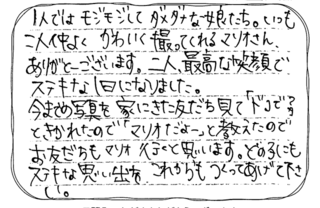 1人ではモジモジして ダメダメな娘たち。いつも
二人仲よく かわいく 撮ってくれるマリオさん、
ありがとーございます。二人、最高な笑顔で
ステキな1日になりました。
今まめ写真を 家にきた友だち見て「ド」でる
ときかれたので「マリオだよーっと教えたので
お友だちもマリオ 行くと思います。どの子にも
ステキな思い出を これからも つくってあげて下さ
い。